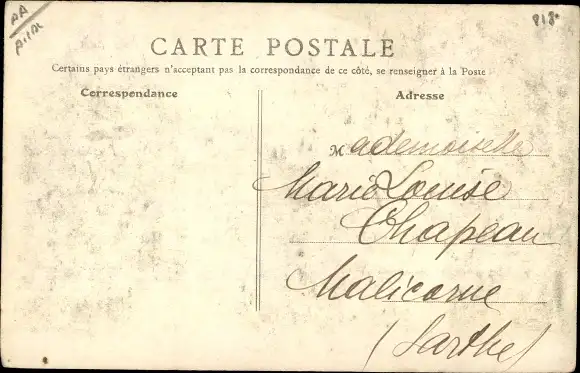 CARTE POSTALE
Certains pays étrangers n'acceptant pas la correspondance de ce côté, se renseigner à la Poste
Correspondance
Adresse
Mademoiselle
Marie Louise
Chapeau
Malicorne
(Sarthe)